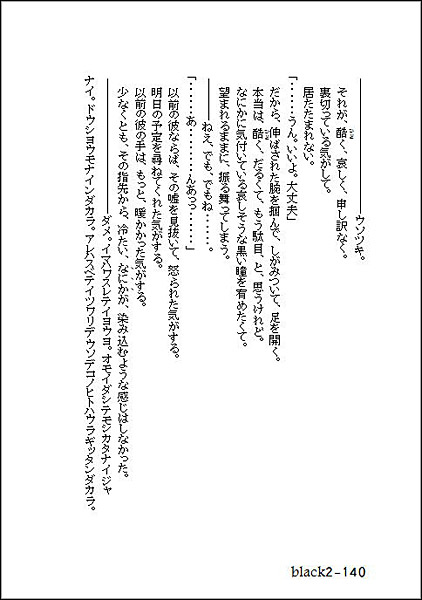 ――――――――ウソツキ。
それが、酷く、哀しく、申し訳なく。
裏切っている気がして。
居たたまれない。
「‥‥‥うん。いいよ。大丈夫」
だから、伸ばされた腕を掴んで、しがみついて、足を開く。
本当は、酷く、だるくて、もう駄目、と、思うけれど。
なにかに気付いている哀しそうな黒い瞳を宥めたくて。
望まれるままに、振る舞ってしまう。
――――ねえ、でも、でもね‥‥‥。
「‥‥‥あ‥‥‥んあっっ‥‥‥」
以前の彼ならば、その嘘を見抜いて、怒られた気がする。
明日の予定を尋ねてくれた気がする。
以前の彼の手は、もっと、暖かかった気がする。
少なくとも、その指先から、冷たい、なにかが、染み込むような感じはしなかった。
――――――――ダメ。イマハワスレテイヨウヨ。オモイダシテモシカタナイジャ
ナイ。ドウショウモナインダカラ。アレハスベテイツワリデウソデコノヒトハウラギッタンダカラ。
black2-140